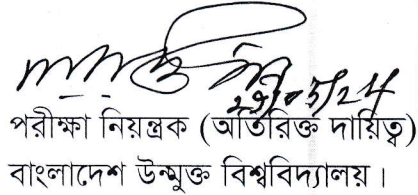 29/05/24
পরীক্ষা নিয়ন্ত্রক (অতিরিক্ত দায়িত্ব)
বাংলাদেশ উন্মুক্ত বিশ্ববিদ্যালয়।